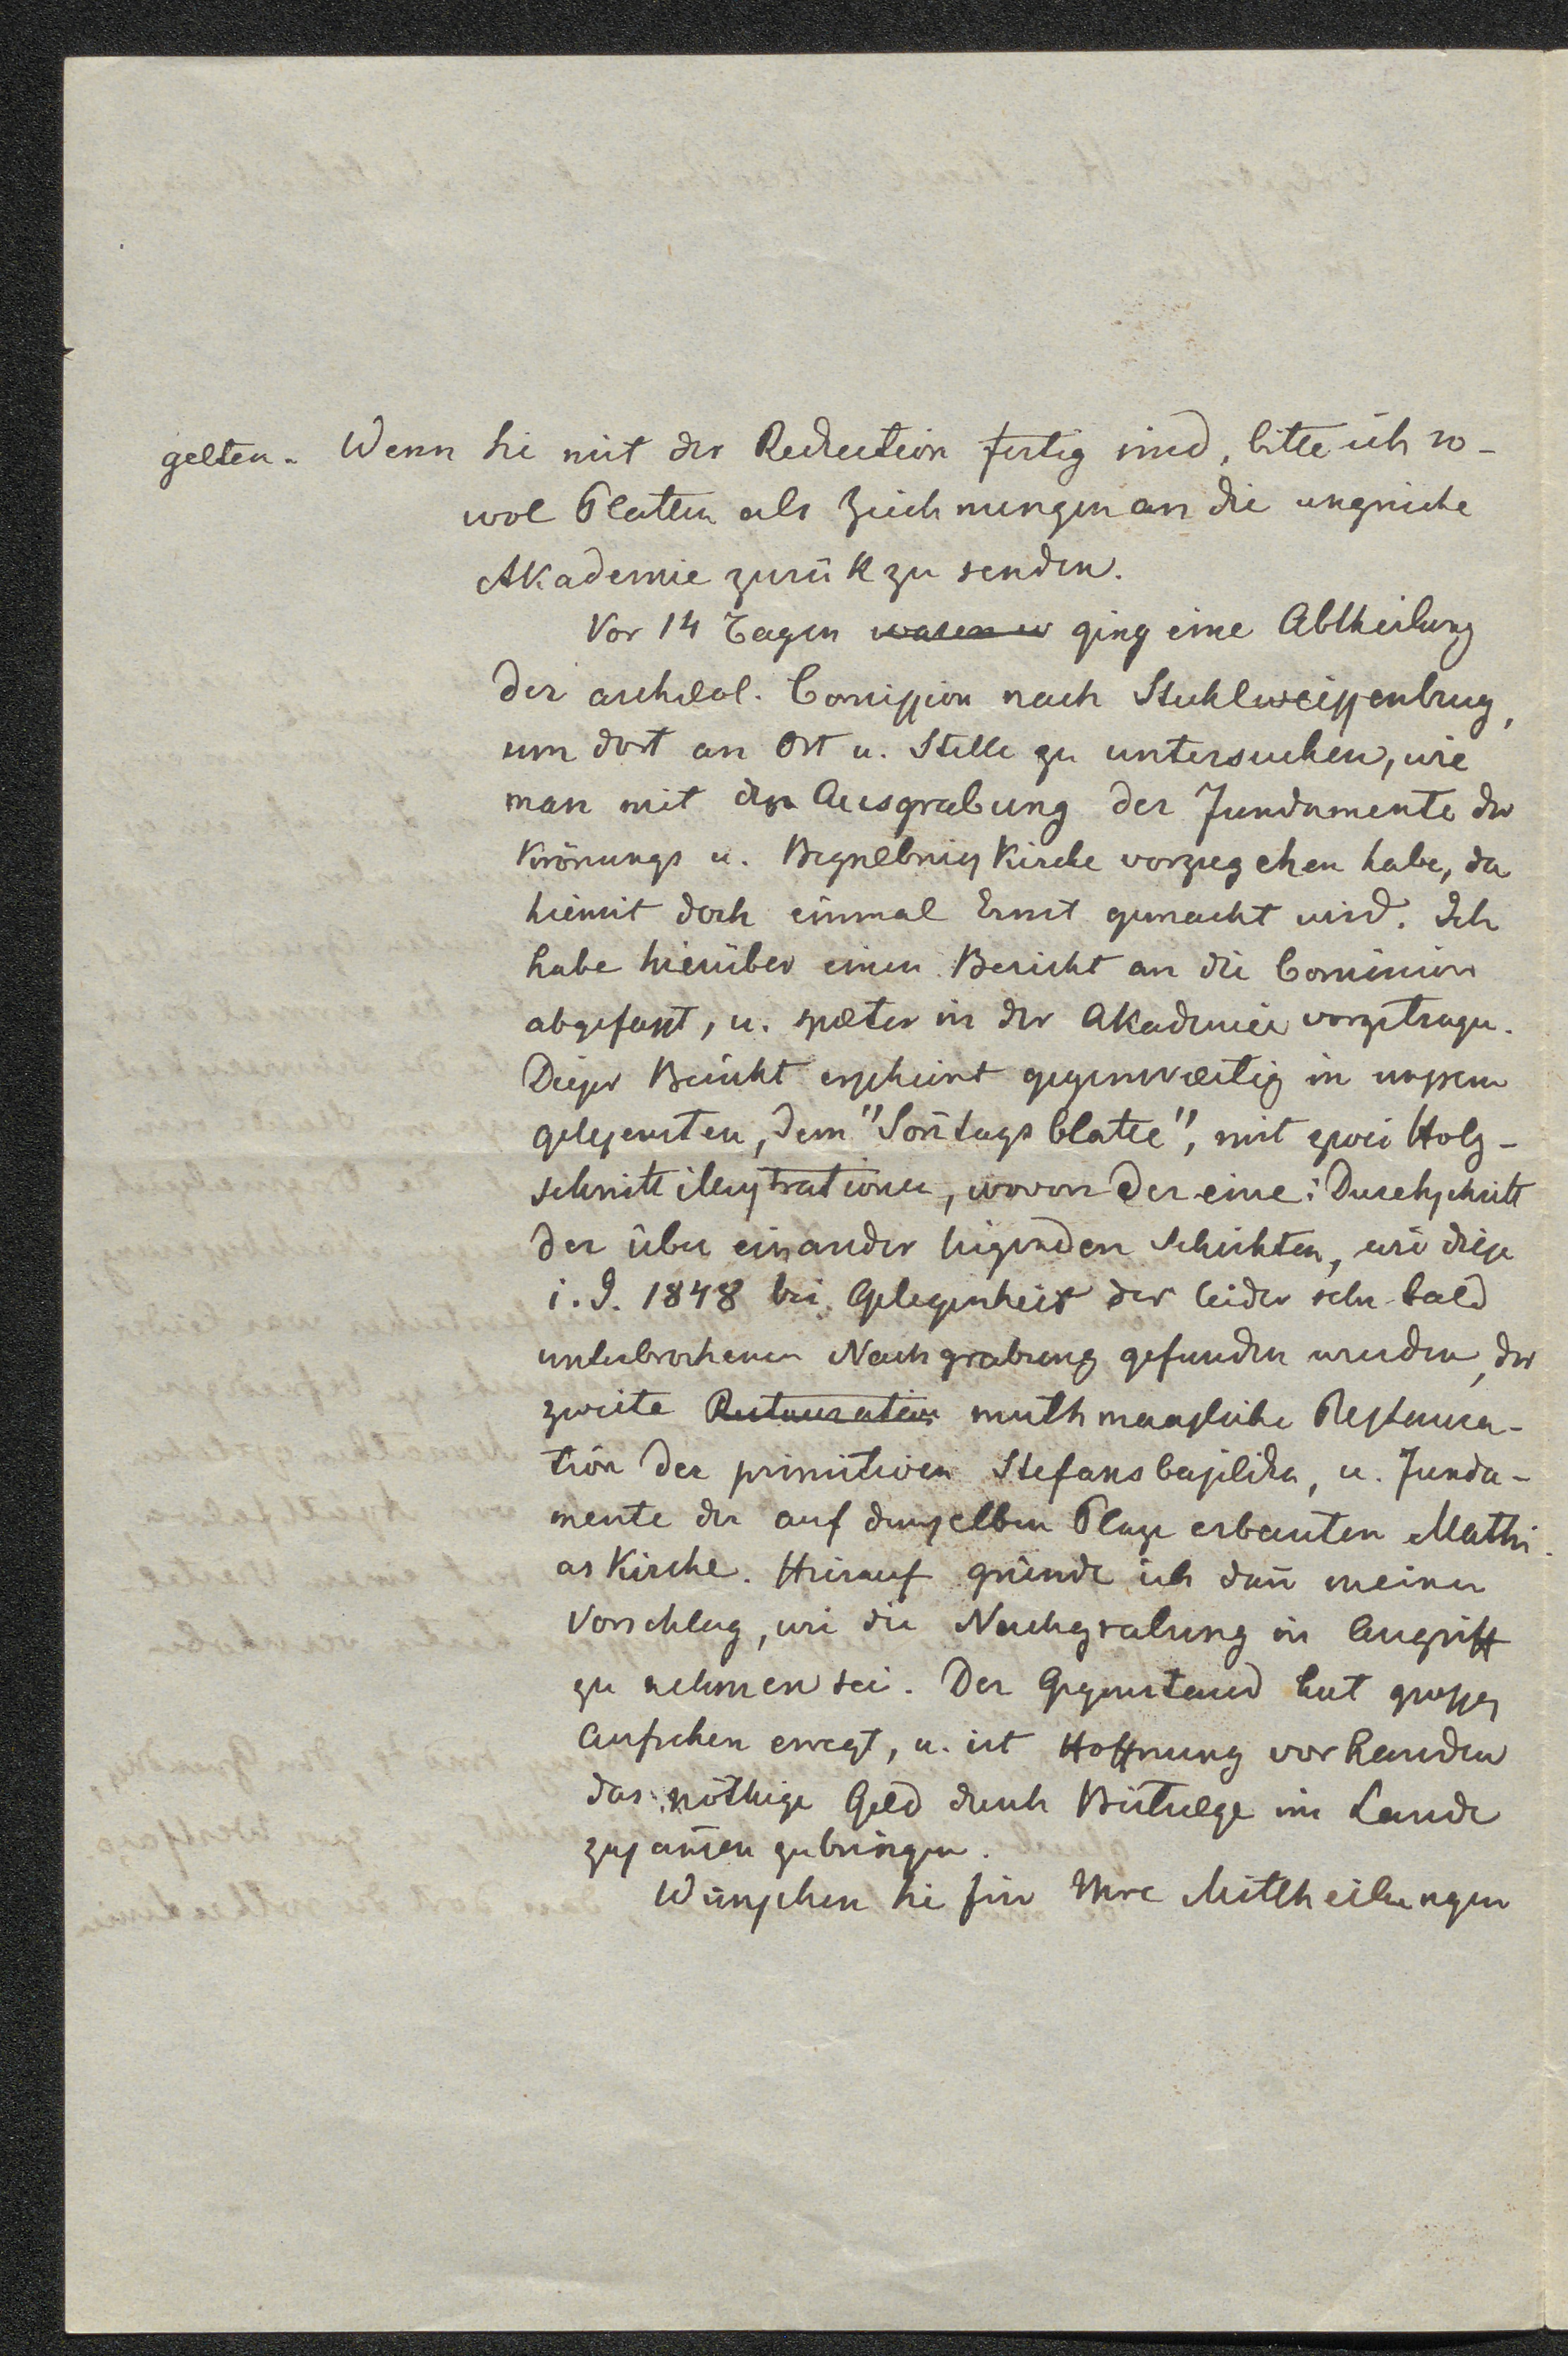 gelten. Wenn Sie mit der Reduction fertig sind, bitte ich so-
wol Platten als Zeichnungen an die ungrische
Akademie zurük zu senden.
Vor 14 Tagen waren w ging eine Abtheilung
der archæol. Comission nach Stuhlweissenbrug,
um dort an Ort u. Stelle zu untersuchen, wie
man mit der Ausgrabung der Fundamente der
Krönungs u. Begræbniss Kirche vorzugehen habe, da
hiemit doch einmal Ernst gemacht wird. Ich
habe hierüber einen Bericht an die Comission
abgefasst, u. spæter in der Akademie vorgetragen.
Dieser Bericht erscheint gegenwærtig in unserm
gelesensten, dem "Soñtagsblatte", mit zwei Holz-
schnitt illustrationen, wovon der eine: Durchschnitt
der über einander ligenden Schichten, wie diese
i. J. 1848 bei Gelegenheit der leider sehr bald
unterbrochenen Nachgrabung gefunden wurden, der
zweite Restauration muthmaasliche Restaura-
tion der primitiven Stefansbasilika, u. Funda-
mente der auf demselben Plaze erbauten Mathi-
as Kirche. Hierauf gründe ich dañ meinen
Vorschlag, wie die Nachgrabung in Angriff
zu nehmen sei. Der Gegenstand hat grosses
Aufsehen erregt, u. ist Hoffnung vorhanden
das nöthige Geld durch Beitræge im Lande
zusam̃en zubringen.
Wünschen Sie für Ihre Mittheilungen